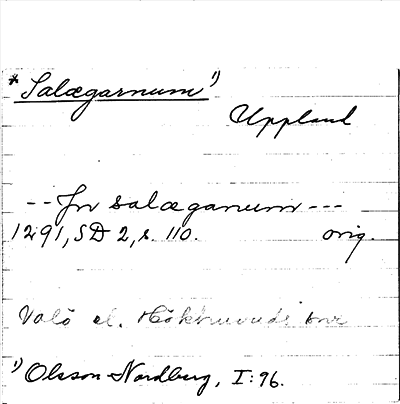 * Salægarnum ¹)
Uppland
-- Jn salæganum ---
1291, SD 2, s. 110. orig.
Valö el.
¹) Olsson-Nordberg, I:96.